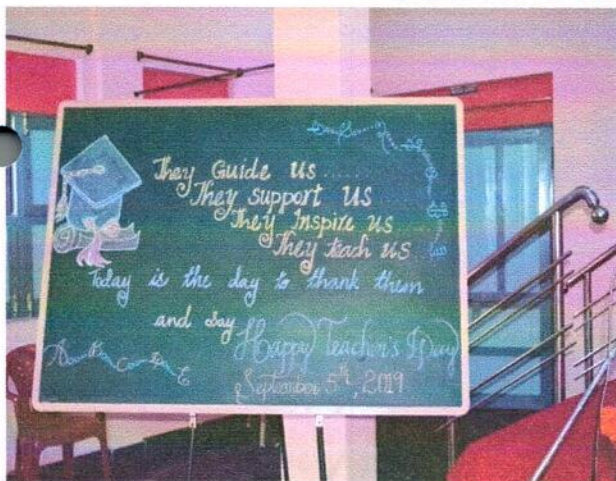 They Guide us......
They support us
They Inspire us
They teach us
Today is the day to thank them
and say Happy Teacher's Day
September 5th, 2019